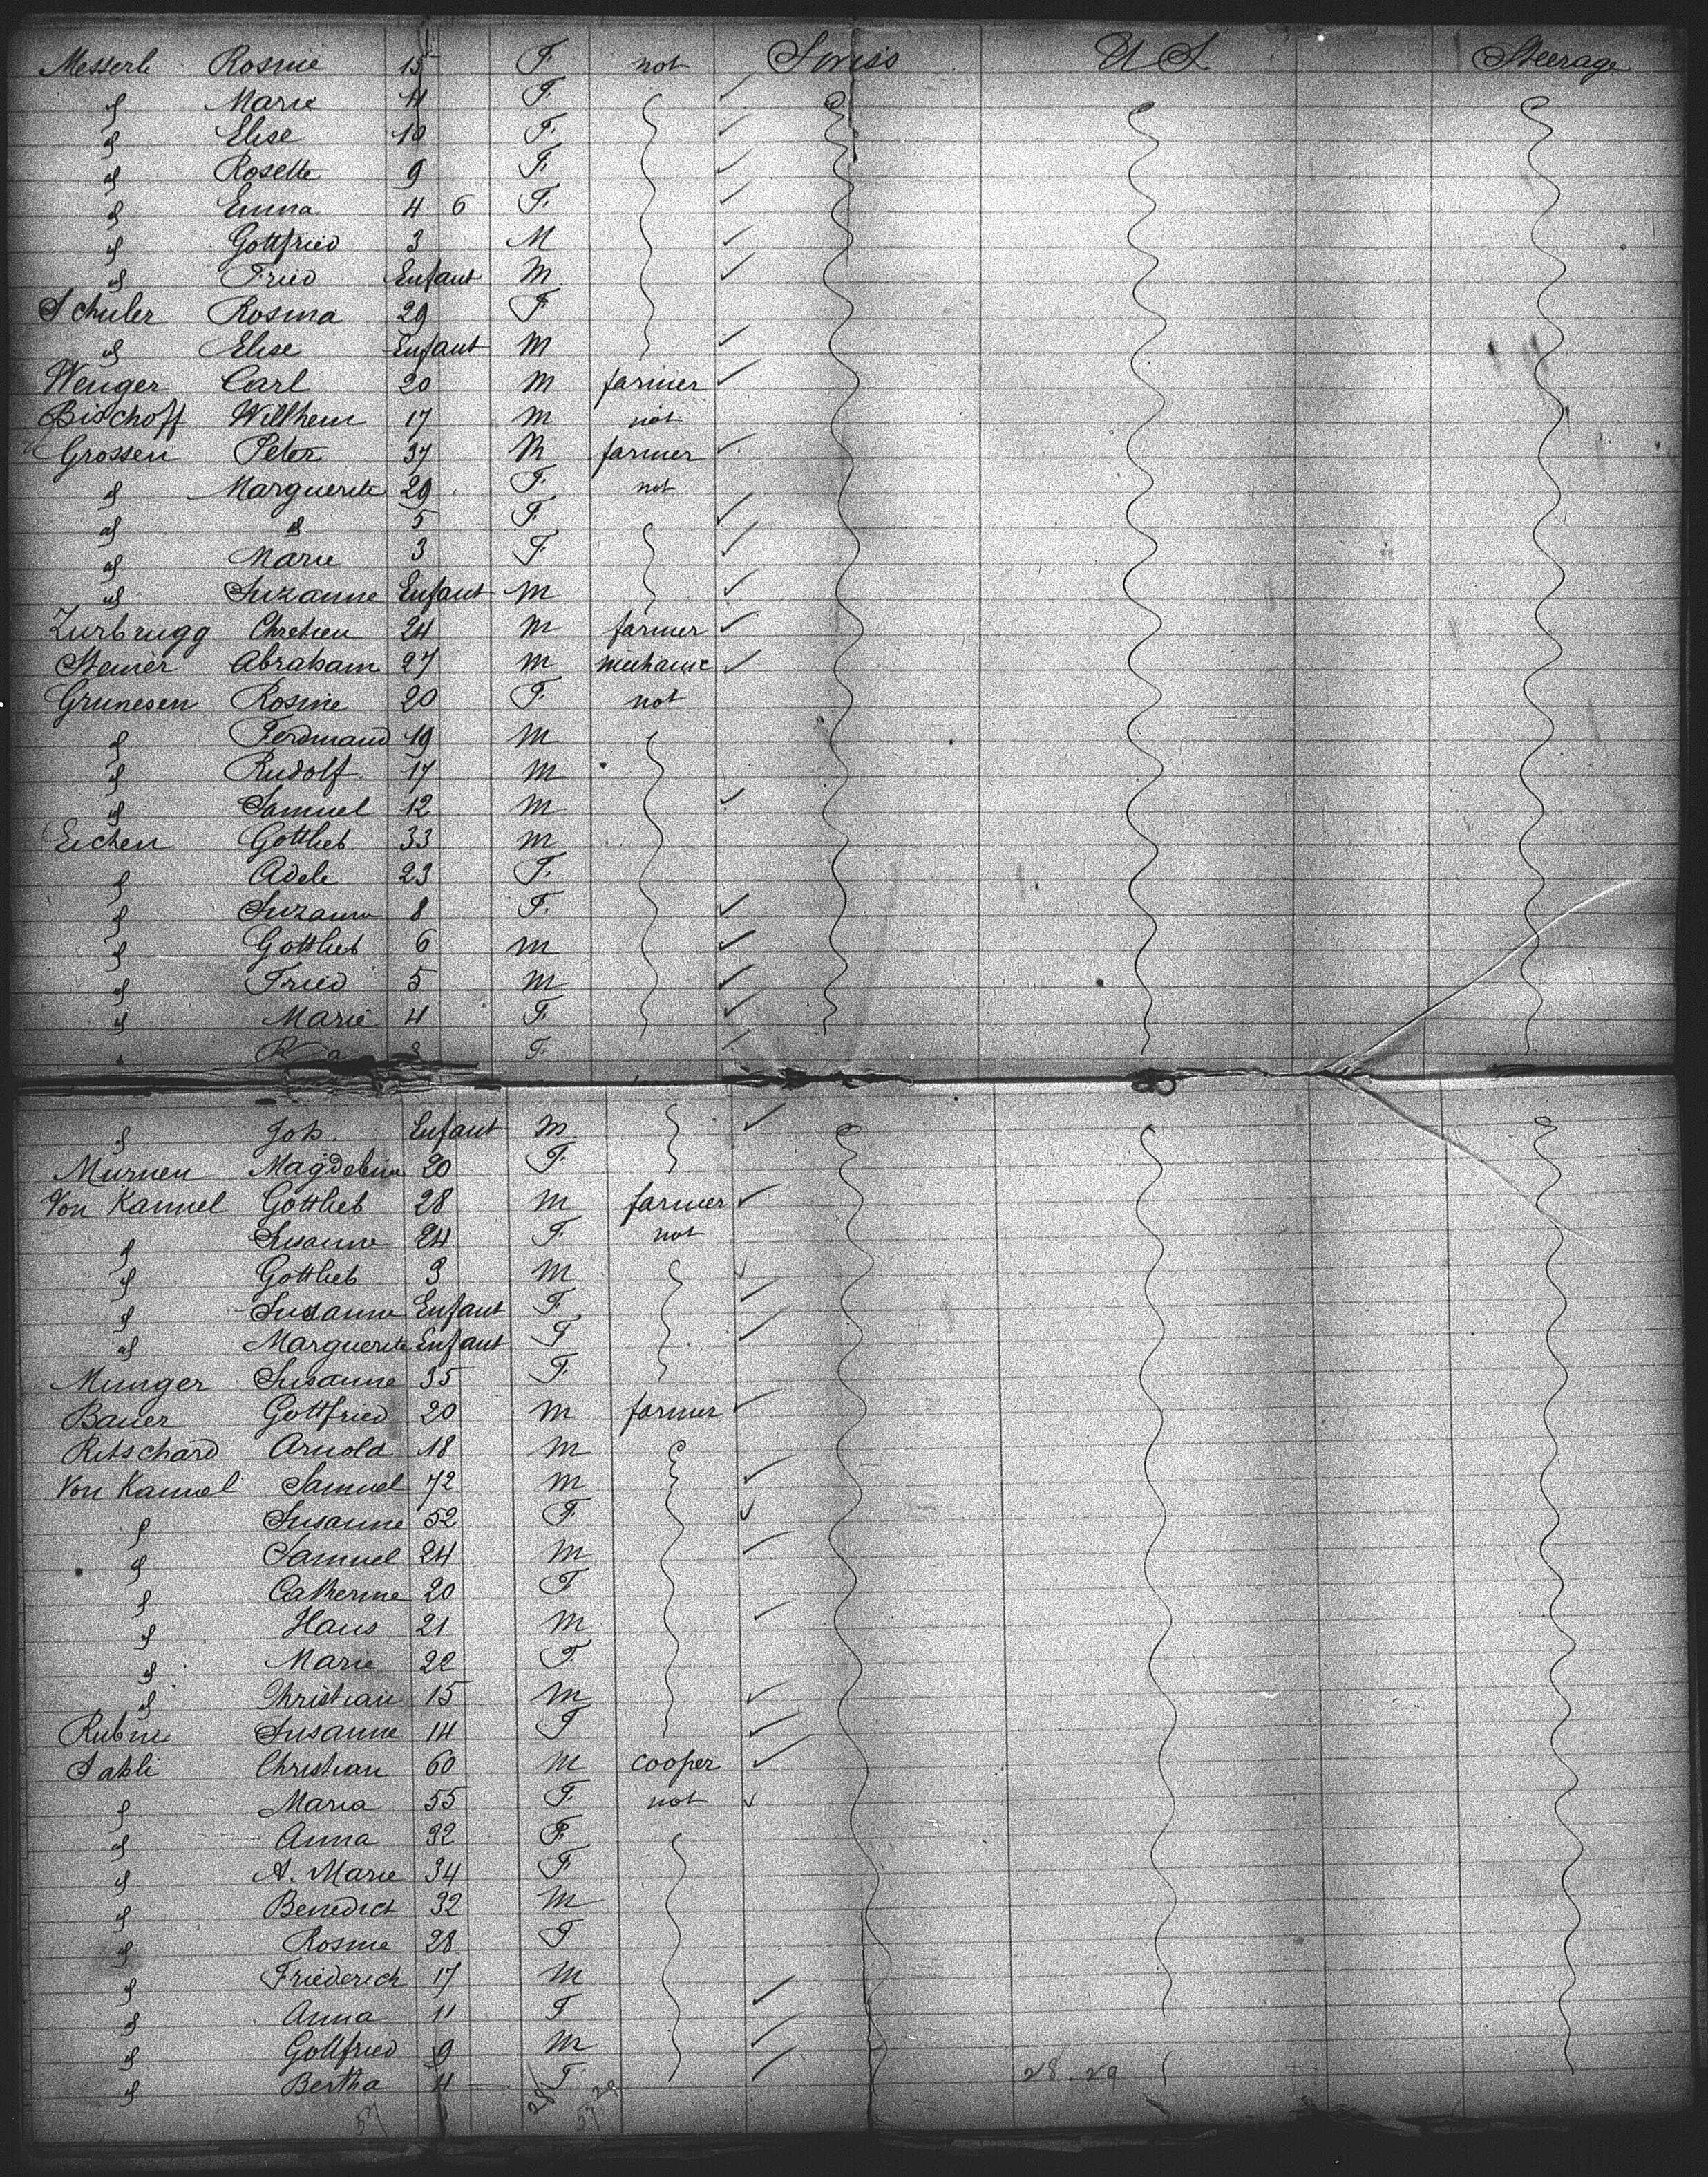 Messerli Rosine 15 F not Swiss U S Steerage
" Marie 11 F
" Elise 10 F
" Rosette 9 F
" Emma 4 6 F
" Gottfried 3 M
" Fried Enfant M
Schuler Rosina 29 F
" Elise Enfant M
Wenger Carl 20 M farmer
Bischoff Willhem 17 M not
Grossen Peter 37 M farmer
" Marguerite 29 F not
" " 5 F
" Marie 3 F
" Suzanne Enfant M
Zurbrugg Chretien 24 M farmer
Steiner Abraham 27 M mechanic
Grunesen Rosine 20 F not
" Ferdinand 19 M
" Rudolf 17 M
" Samuel 12 M
Eichen Gottlieb 33 M
" Adele 23 F
" Suzanne 8 F
" Gottlieb 6 M
" Fried 5 M
" Marie 4 F
" F
" Joh. Enfant M
Murnen Magdelina 20 F
Von Kannel Gottlieb 28 M farmer
" Susanne 24 F not
" Gottlieb 3 M
" Susanne Enfant F
" Marguerite Enfant F
Munger Susanne 35 F
Bauer Gottfried 20 M farmer
Ritschard Arnold 18 M
Von Kannel Samuel 72 M
" Susanne 52 F
" Samuel 24 M
" Catherine 20 F
" Hans 21 M
" Marie 22 F
" Christian 15 M
Rubin Susanne 14 F
Sahli Christian 60 M cooper
" Maria 55 F not
" Anna 32 F
" A. Marie 34 F
" Benedict 32 M
" Rosine 28 F
" Friederich 17 M
" Anna 11 F
" Gottfried 9 M
" Bertha 4 F 28 29
57 28 29 57